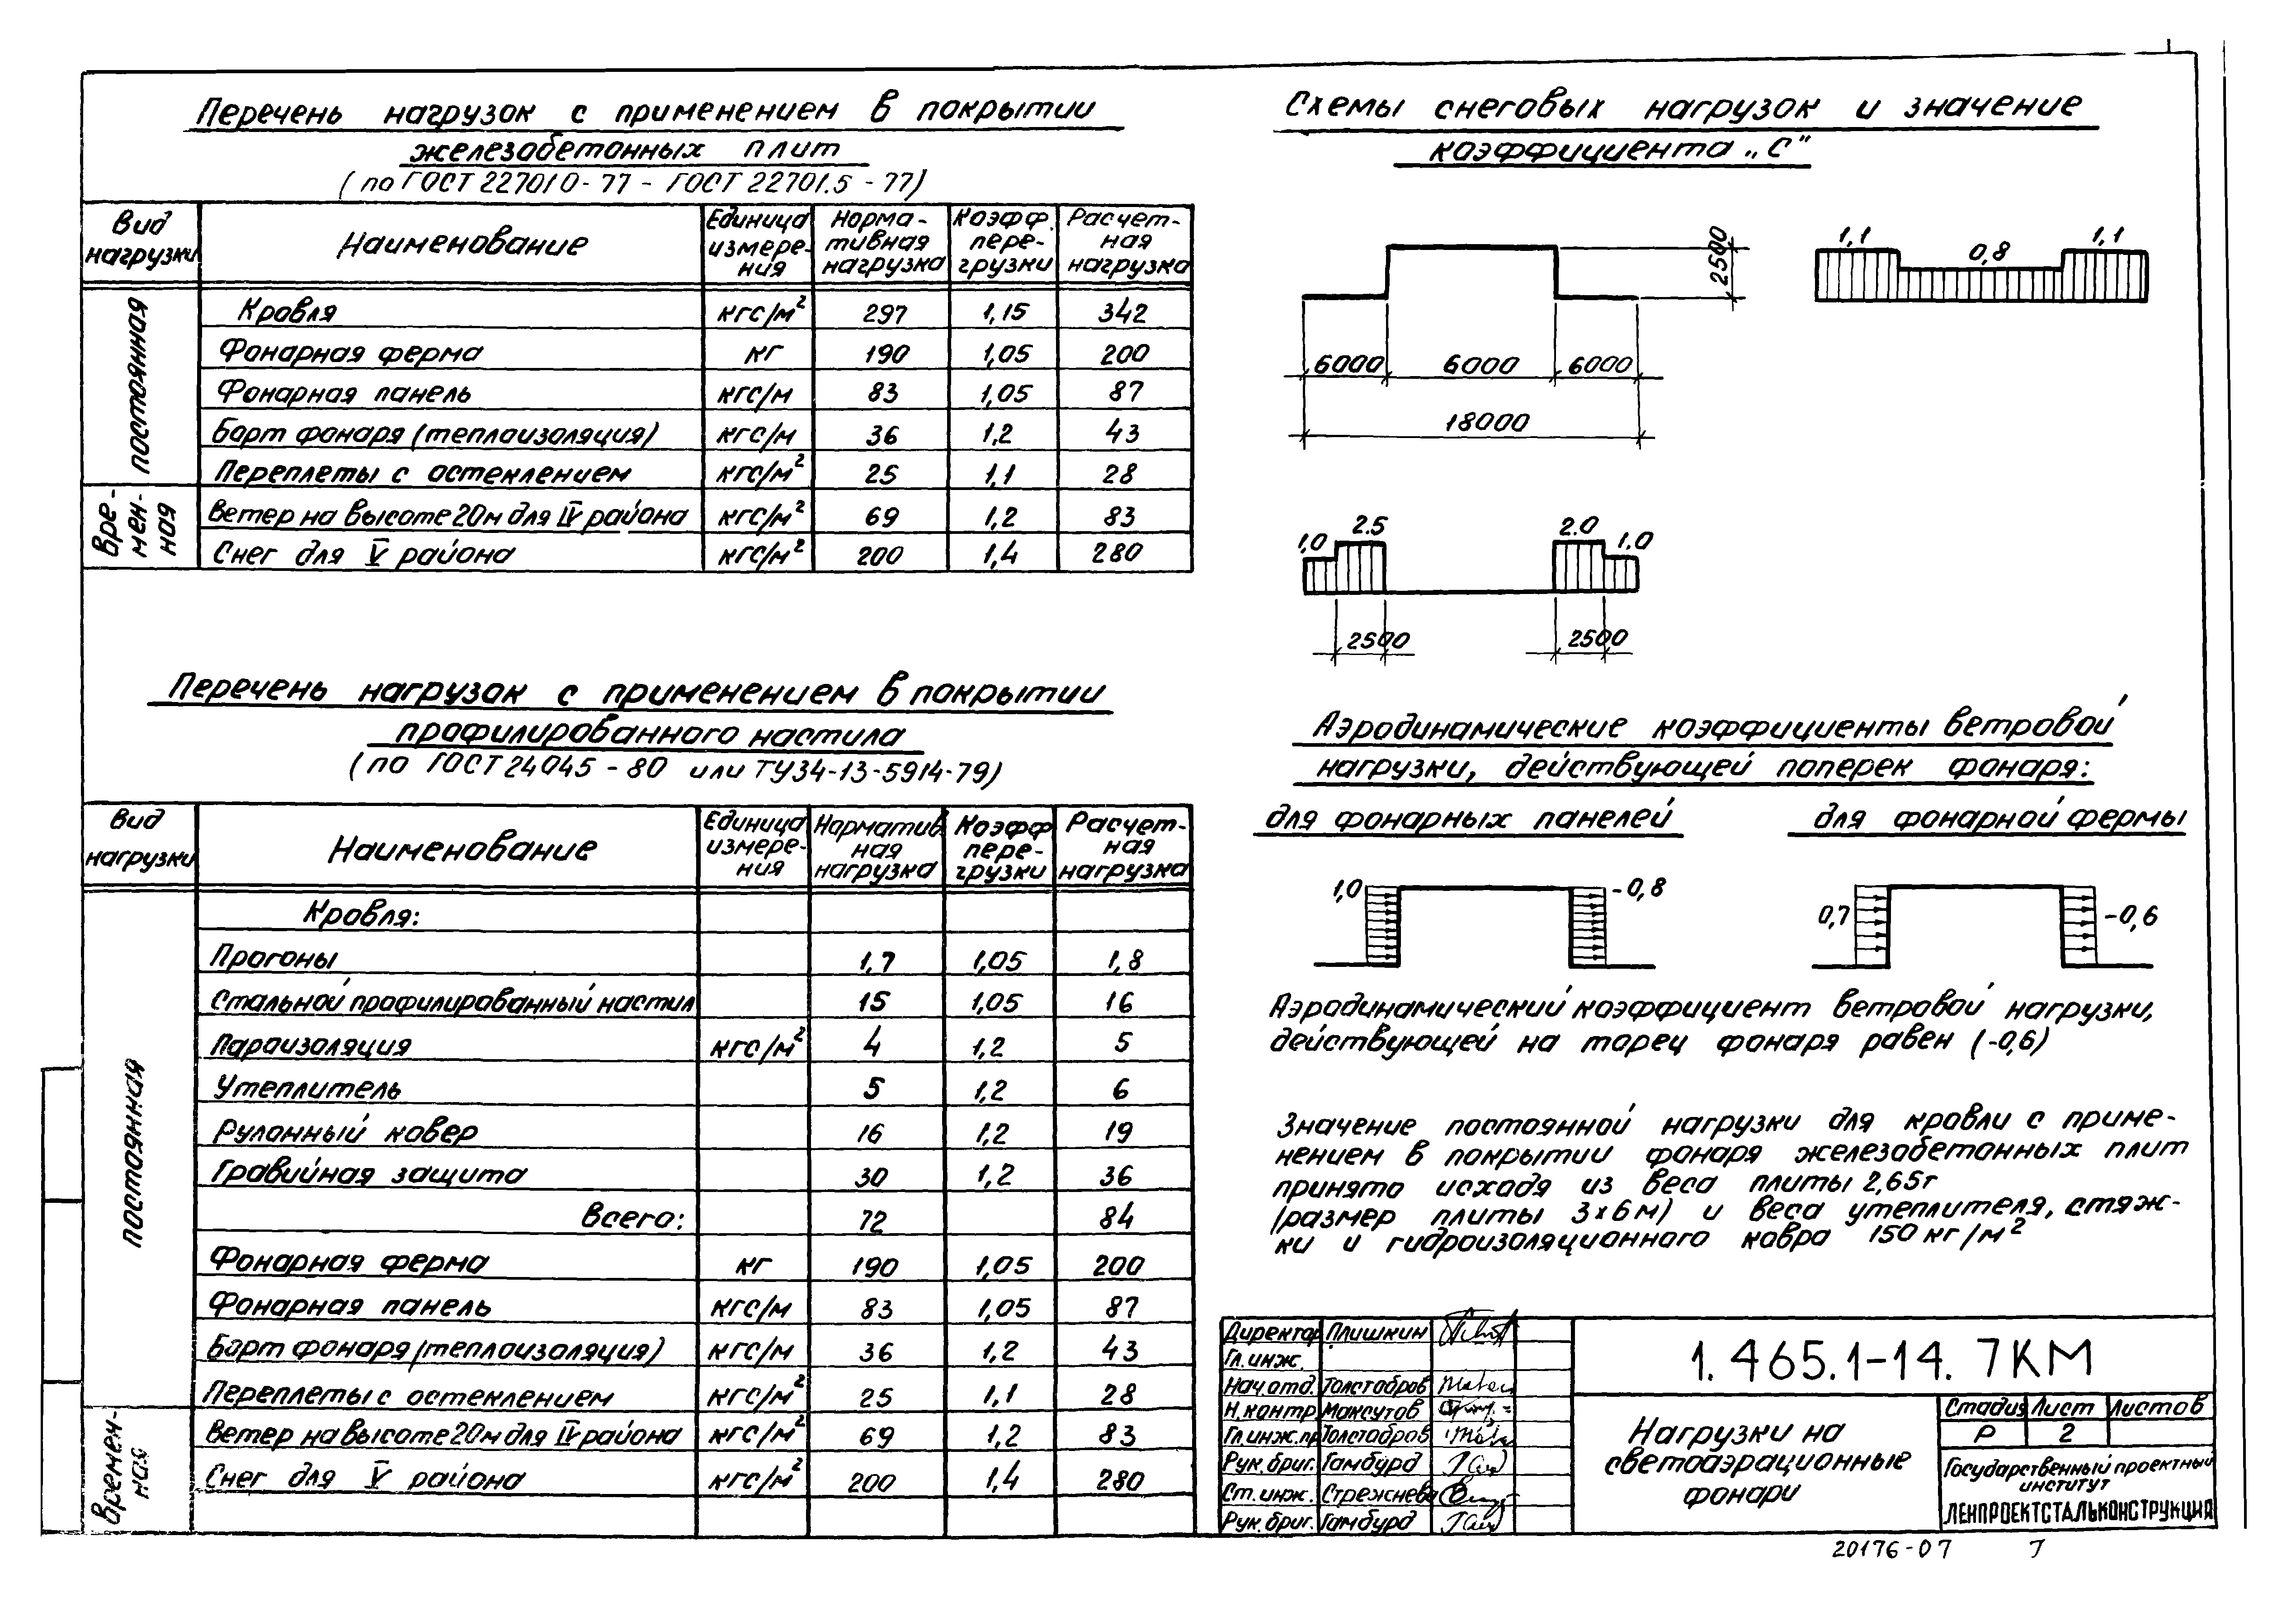 Перечень нагрузок с применением в покрытии
железобетонных плит
(по ГОСТ 22701.0-77 - ГОСТ 22701.5-77)
Вид нагрузки Наименование Единица измере-ния Норма-тивная нагрузка Коэфф. пере-грузки Расчет-ная нагрузка
постоянная
Кровля кгс/м² 297 1,15 342
Фонарная ферма кг 190 1,05 200
Фонарная панель кгс/м 83 1,05 87
Борт фонаря (теплоизоляция) кгс/м 36 1,2 43
Переплеты с остеклением кгс/м² 25 1,1 28
Вре-мен-ная
Ветер на высоте 20м для IV района кгс/м² 69 1,2 83
Снег для V района кгс/м² 200 1,4 280
Перечень нагрузок с применением в покрытии
профилированного настила
(по ГОСТ 24045-80 или ТУ34-13-5914-79)
Вид нагрузки Наименование Единица измере-ния Норматив ная нагрузка Коэфф пере-грузки Расчет-ная нагрузка
постоянная
Кровля:
Прогоны 1,7 1,05 1,8
Стальной профилированный настил 15 1,05 16
Пароизоляция кгс/м² 4 1,2 5
Утеплитель 5 1,2 6
Рулонный ковер 16 1,2 19
Гравийная защита 30 1,2 36
Всего: 72 84
Фонарная ферма кг 190 1,05 200
Фонарная панель кгс/м 83 1,05 87
Борт фонаря (теплоизоляция) кгс/м 36 1,2 43
Переплеты с остеклением кгс/м² 25 1,1 28
Времен-ная
Ветер на высоте 20м для IV района кгс/м² 69 1,2 83
Снег для V района кгс/м² 200 1,4 280
Схемы снеговых нагрузок и значение
коэффициента „С"
2500
6000 6000 6000
18000
1,1 0,8 1,1
1,0 2.5 2.0 1.0
2500 2500
Аэродинамические коэффициенты ветровой
нагрузки, действующей поперек фонаря:
для фонарных панелей для фонарной фермы
1,0 -0,8 0,7 -0,6
Аэродинамический коэффициент ветровой нагрузки,
действующей на торец фонаря равен (-0,6)
Значение постоянной нагрузки для кровли с приме-
нением в покрытии фонаря железобетонных плит
принято исходя из веса плиты 2,65т
(размер плиты 3×6м) и веса утеплителя, стяж-
ки и гидроизоляционного ковра 150 кг/м²
Директор Плишкин
Гл.инж.
Нач.отд. Толстобров
Н.контр Максутов
Гл.инж.пр Толстобров
Рук.бриг. Гамбурд
Ст.инж. Стрежнева
Рук.бриг. Гамбурд
1.465.1-14. 7КМ
Нагрузки на
светоаэрационные
фонари
Стадия Лист Листов
Р 2
Государственный проектный
институт
ЛЕНПРОЕКТСТАЛЬКОНСТРУКЦИЯ
20176-07